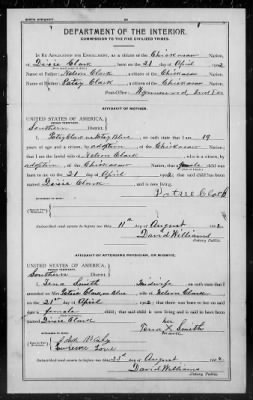 BIRTH AFFIDAVIT.
DEPARTMENT OF THE INTERIOR.
COMMISSION TO THE FIVE CIVILIZED TRIBES.
IN RE APPLICATION FOR ENROLLMENT, as a citizen of the Chickasaw Nation,
of Dixie Clark, born on the 21 day of April, 1902
Name of Father: Nelson Clark a citizen of the Chickasaw Nation.
Name of Mother: Patsey Clark a citizen of the Chickasaw Nation.
Post-Office: Wynnewood Ind Ter
AFFIDAVIT OF MOTHER.
UNITED STATES OF AMERICA,
INDIAN TERRITORY.
Southern District.
I, on oath state that I am 19
years of age and a citizen by adoption, of the Chickasaw Nation;
that I am the lawful wife of Nelson Clark, who is a citizen, by
adoption, of the Chickasaw Nation; that a female child was
born to me on the 21 day of April, 1902; that said child has been
named Dixie Clark, and is now living.
WITNESSES TO MARK:
Subscribed and sworn to before me this 11th day of August, 1902
David Williams
Notary Public.
AFFIDAVIT OF ATTENDING PHYSICIAN, OR MIDWIFE.
UNITED STATES OF AMERICA,
INDIAN TERRITORY.
Southern District.
I, Tena Smith, a midwife, on oath state that I
attended on Mrs. wife of Nelson Clark
on the 21st day of April, 1902; that there was born to her on said
date a female child; that said child is now living and is said to have been
named Dixie Clark
her
Tena X Smith
mark
WITNESSES TO MARK:
Love
Subscribed and sworn to before me this day of August, 1902
David Williams
Notary Public.